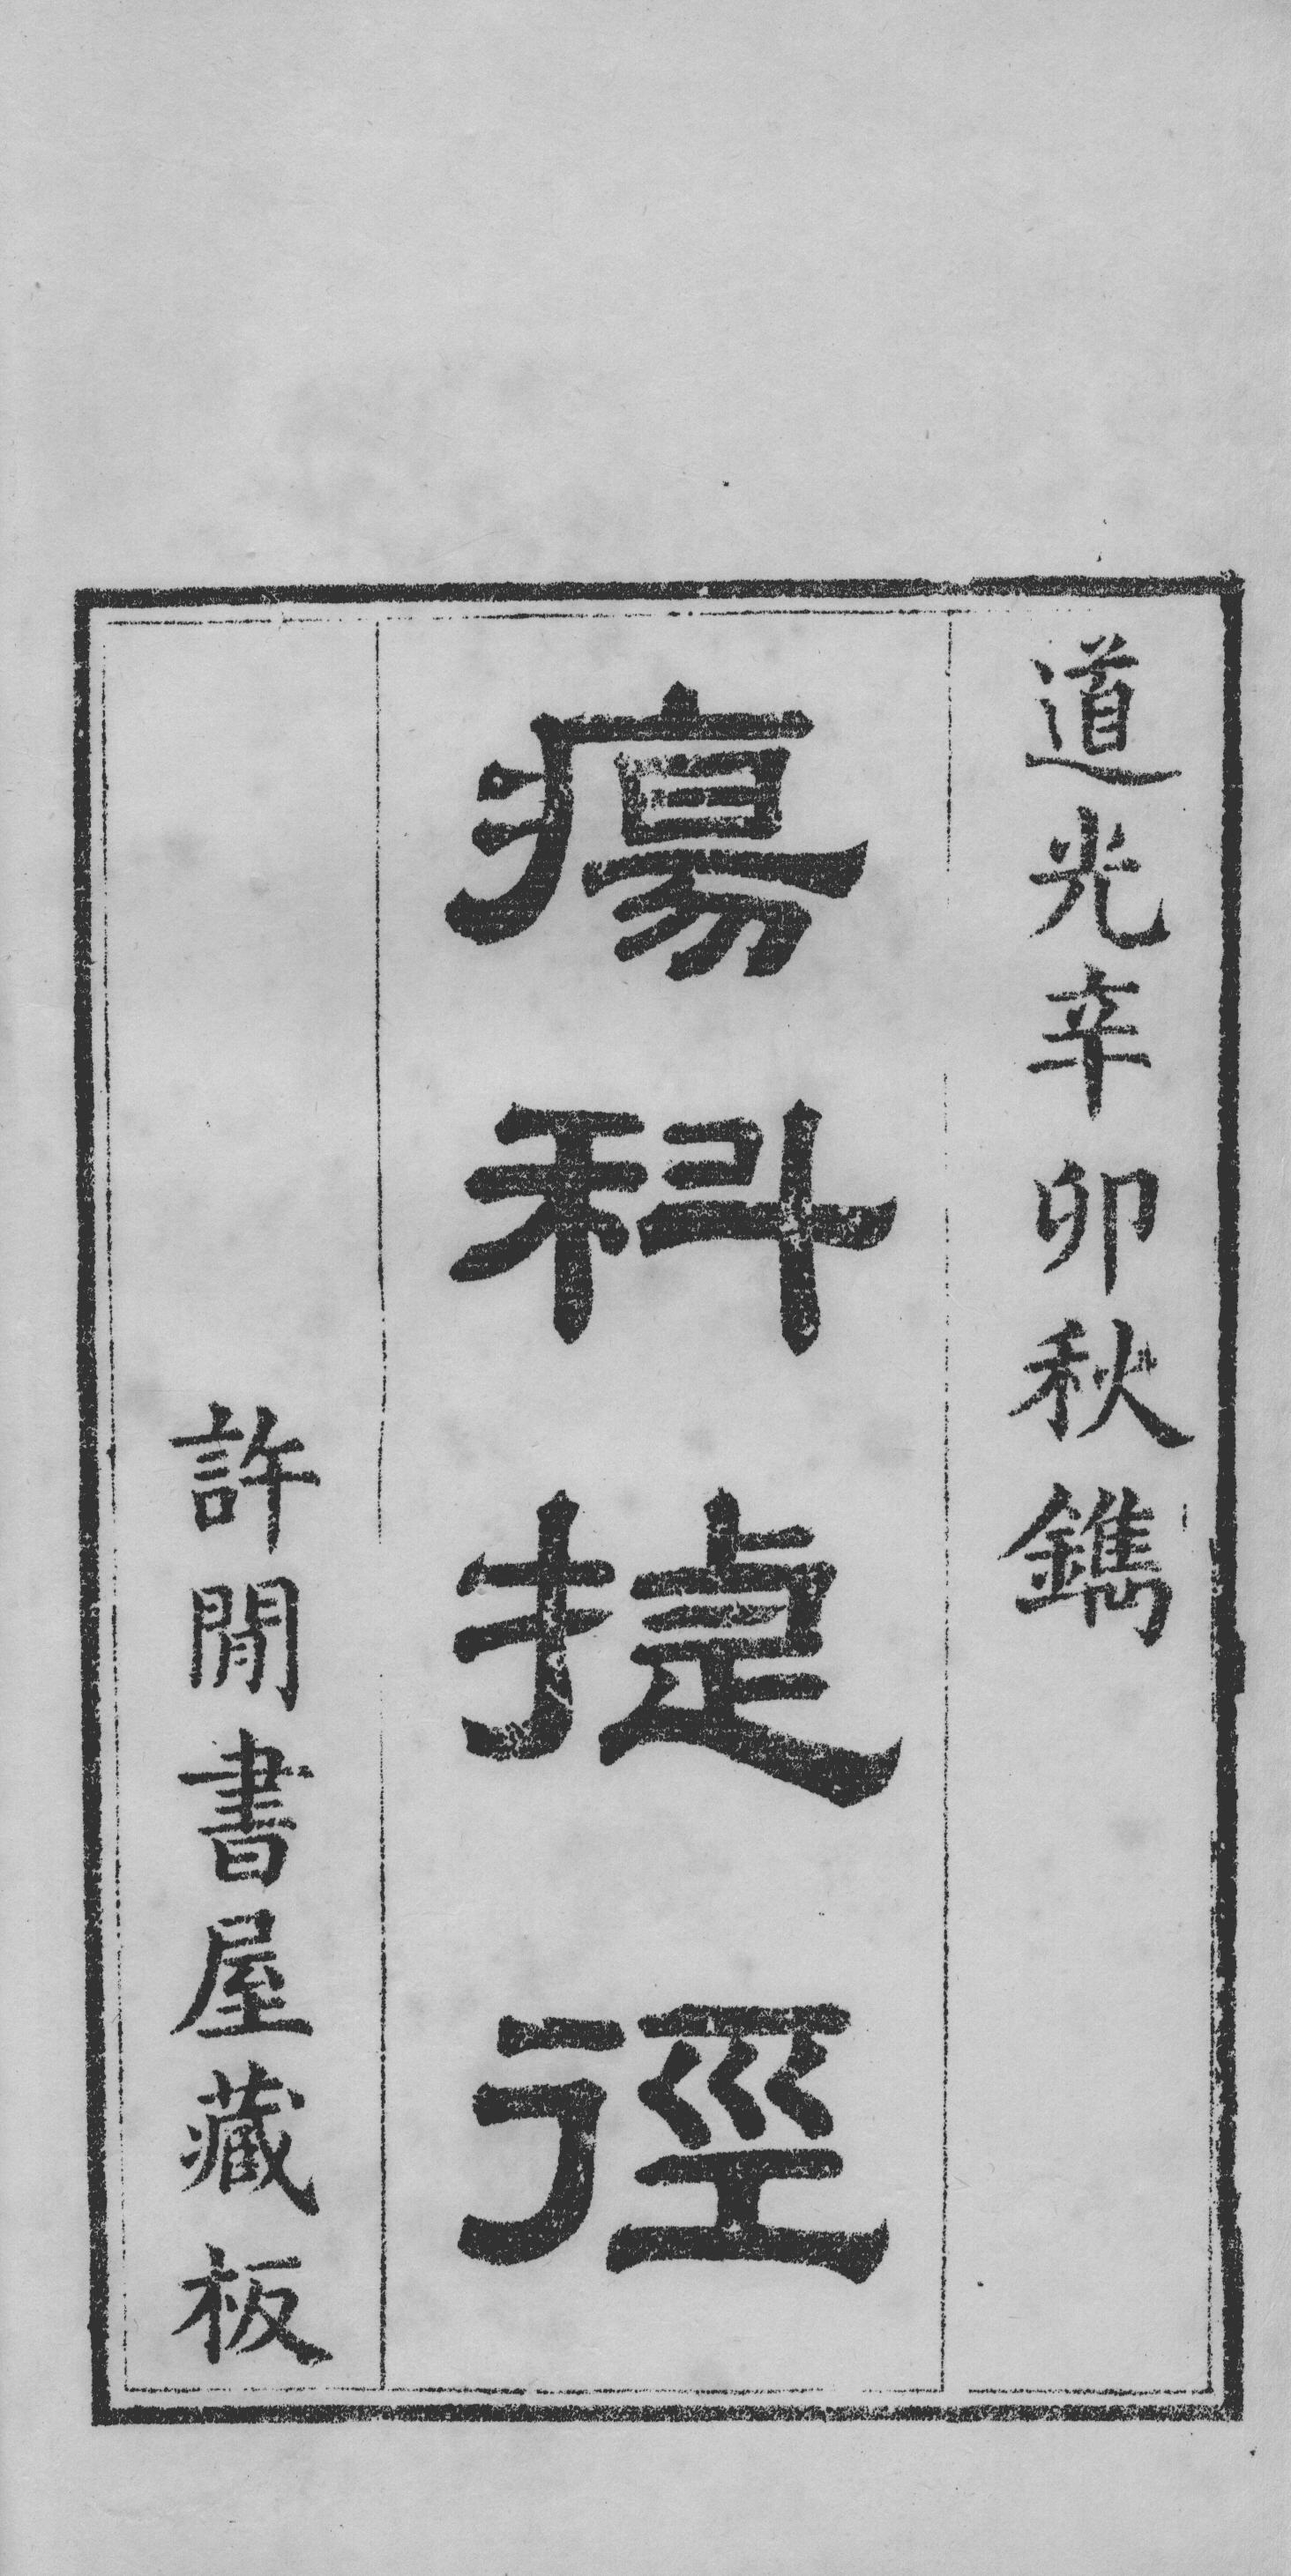 道光辛卯秋鐫
瘍科捷徑
許閒書屋藏板